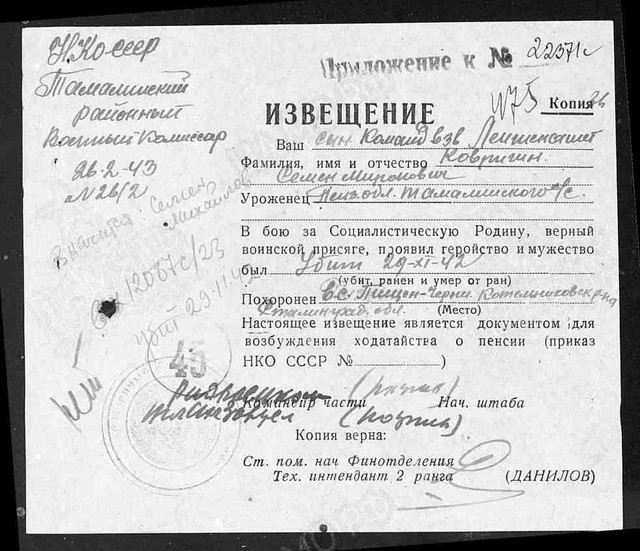 Н.К.О СССР
Тамалинский
районный
Военный Комиссар
26-2-43
№ 26/2
Приложение к № 22371с
Копия
ИЗВЕЩЕНИЕ
Ваш сын Команд взв Лейтенант
Фамилия, имя и отчество Ковригин
Семен Миронович
Уроженец Пенз. обл. Тамалинского р/с.
В бою за Социалистическую Родину, верный
воинской присяге, проявил геройство и мужество
был Убит 29-XI-42
(убит, ранен и умер от ран)
Похоронен В.С. Пищен-Черни. Котельниковск р-на
Сталинград. обл. (Место)
Настоящее извещение является документом для
возбуждения ходатайства о пенсии (приказ
НКО СССР № )
Командир части (подпись) Нач. штаба
(подпись)
Копия верна:
Ст. пом. нач Финотделения
Тех. интендант 2 ранга (ДАНИЛОВ)
Семен
Михайлов
вх 12067с/23
убит 29.11.42
45